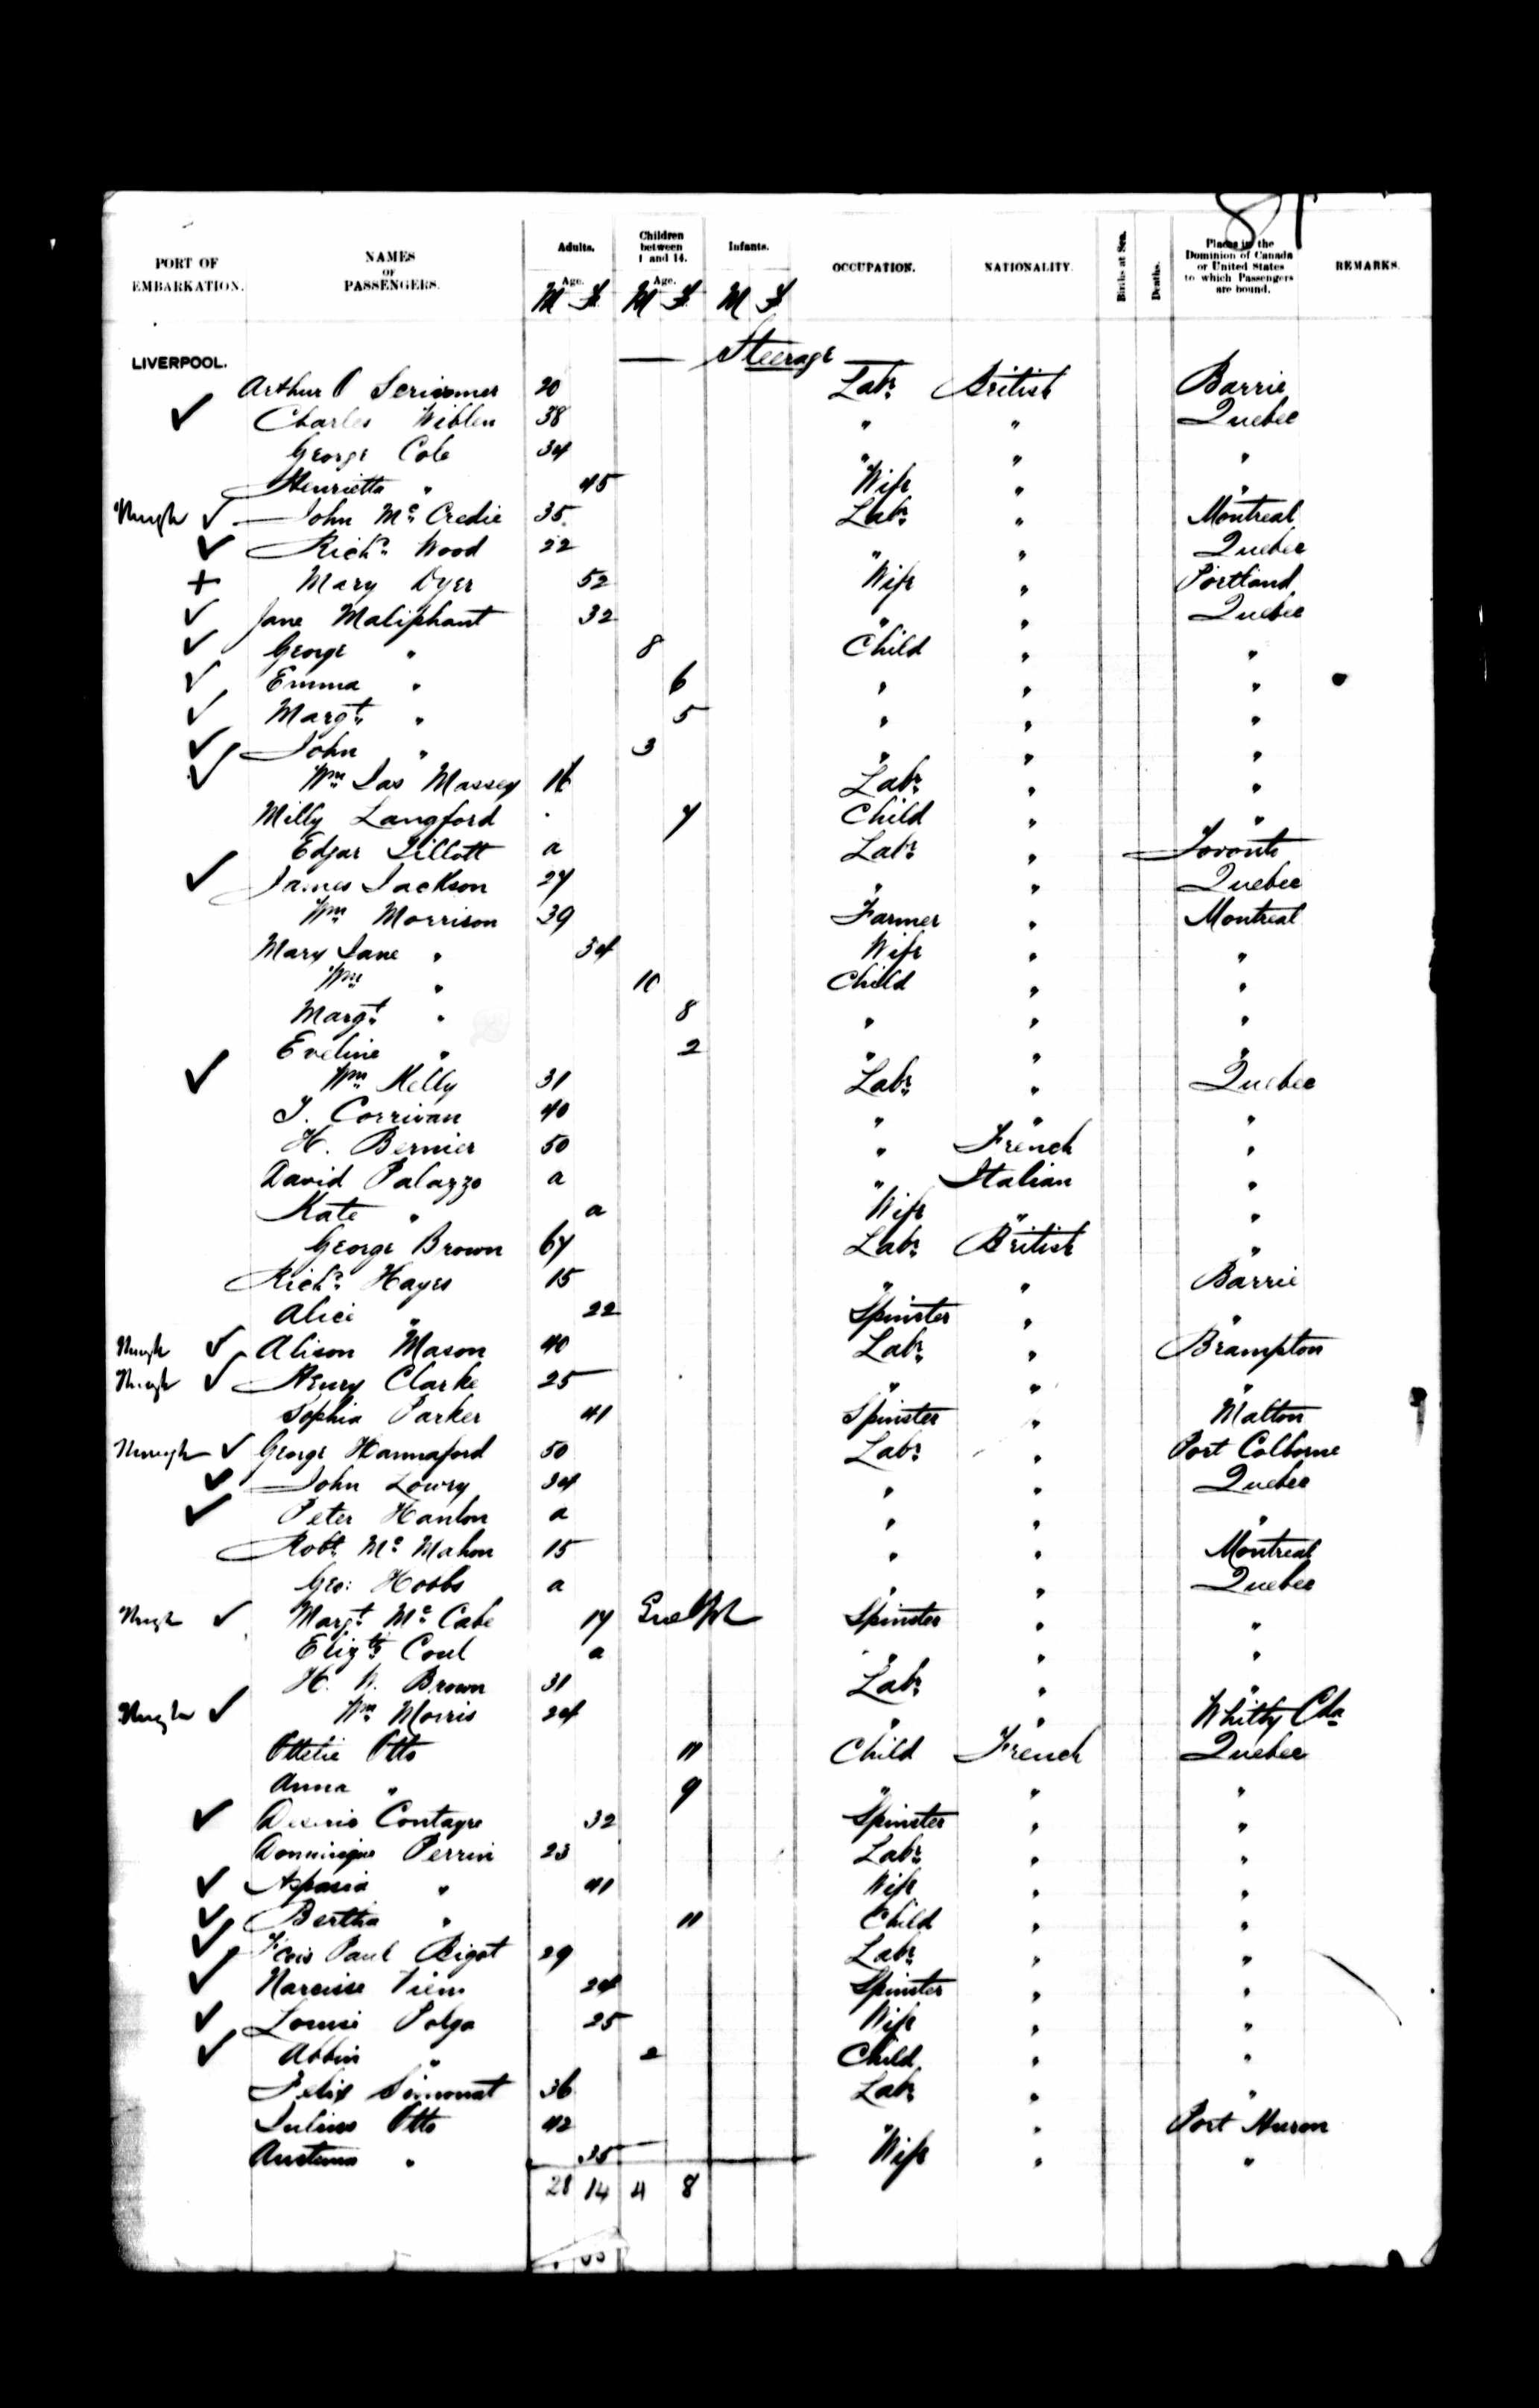 81
PORT OF EMBARKATION. NAMES OF PASSENGERS. Adults. Age. M F Children between 1 and 14. Age. M F Infants. M F OCCUPATION. NATIONALITY. Births at Sea. Deaths. Places in the Dominion of Canada or United States to which Passengers are bound. REMARKS.
LIVERPOOL. — Steerage
Arthur P Scrivomer 20 Labr. British Barrie
✓ Charles Wiblen 38 " " Quebec
George Cole 34 " " "
Henrietta " 45 Wife " "
Through ✓ John Mc Credie 35 Labr. " Montreal
✓ Richd. Wood 22 " " Quebec
+ Mary Dyer 52 Wife " Portland
✓ Jane Maliphant 32 " " Quebec
✓ George " 8 Child " "
✓ Emma " 6 " " "
✓ Margt. " 5 " " "
✓ John " 3 " " "
✓ Wm Jas Massey 16 Labr. " "
Milly Langford 7 Child " "
Edgar Tillott a Labr. " Toronto
✓ James Jackson 27 " " Quebec
Wm Morrison 39 Farmer " Montreal
Mary Jane " 34 Wife " "
Wm " 10 Child " "
Margt. " 8 " " "
Eveline " 2 " " "
✓ Wm Kelly 31 Labr. " Quebec
T. Corrivan 40 " " "
H. Bernier 50 " French "
David Palazzo a " Italian "
Kate " a Wife " "
George Brown 67 Labr. British "
Richd. Hayes 15 " " Barrie
Alice " 22 Spinster " "
Through ✓ Alison Mason 40 Labr. " Brampton
Through ✓ Henry Clarke 25 " " "
Sophia Parker 41 Spinster " Malton
Through ✓ George Hannaford 50 Labr. " Port Colborne
✓ John Lowry 34 " " Quebec
✓ Peter Hanlon a " " "
Robt. Mc Mahon 15 " " Montreal
Geo: Hobbs a " " Quebec
Through ✓ Margt. Mc Cabe 17 Guelph Spinster " "
Elizth Coul a " " "
H. W. Brown 31 Labr. " "
Through ✓ Wm Morris 24 " " Whitby Cda
Ottelie Otto 11 Child French Quebec
Anna " 9 " " "
✓ Contagre 32 Spinster " "
Dominique Perrin 23 Labr. " "
✓ Aspasia " 41 Wife " "
✓ Bertha " 11 Child " "
✓ Fcois Paul Bigot 29 Labr. " "
✓ Narcisse 24 Spinster " "
✓ Louise Polga 25 Wife " "
✓ Albin " 2 Child " "
Felix Simonat 36 Labr. " "
Julius Otto 42 " " Port Huron
" 35 Wife " "
28 14 4 8